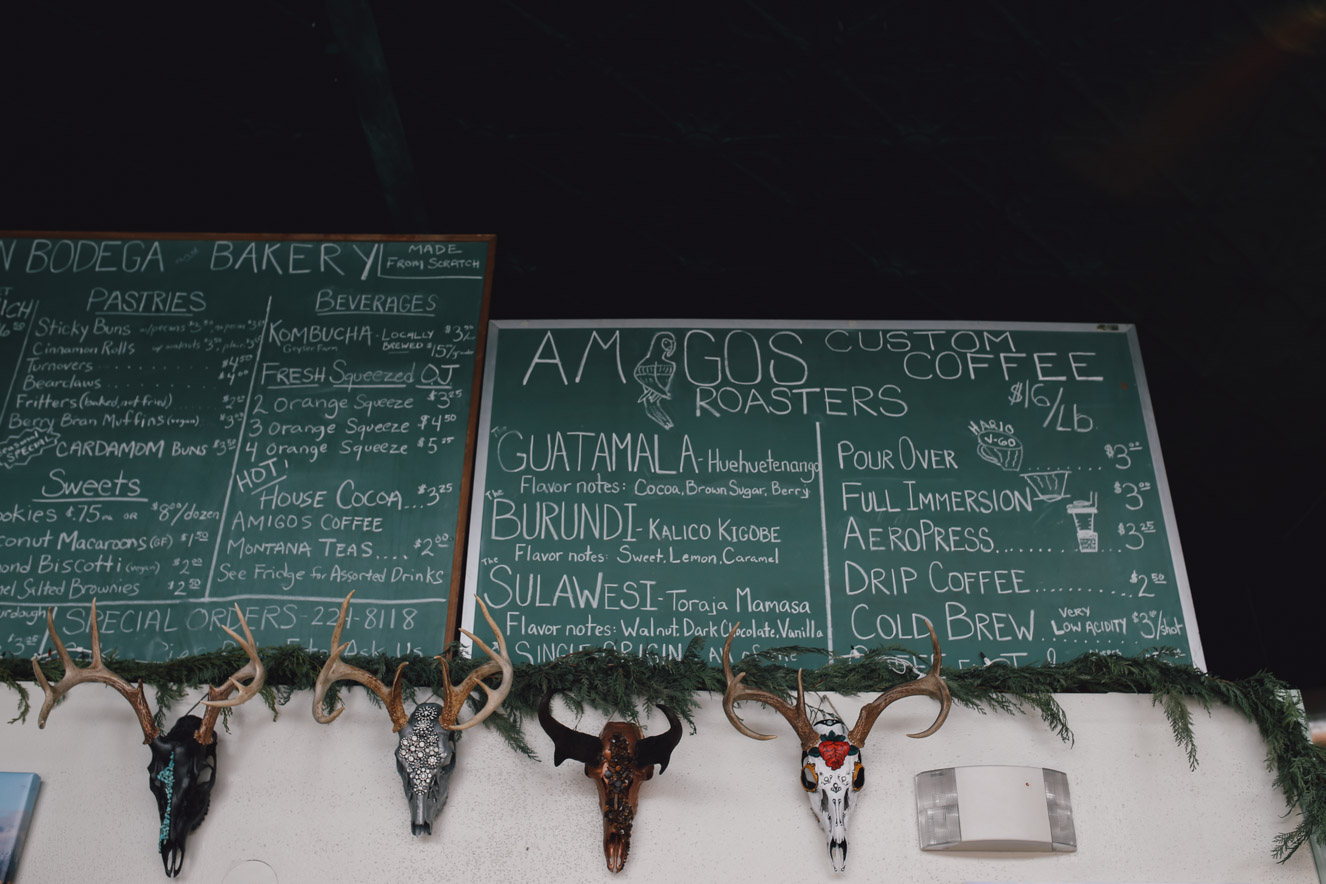 N BODEGA BAKERY
MADE
FROM SCRATCH
PASTRIES
Sticky Buns
Cinnamon Rolls
Turnovers . . . . . . . $4.50
Bearclaws
Fritters (baked, not fried)
Berry Bran Muffins (vegan)
SPECIAL
CARDAMOM BUNS
Sweets
ookies $.75 OR $8/dozen
conut Macaroons (GF) $1.50
ond Biscotti (vegan) $2
el Salted Brownies $2.50
BEVERAGES
KOMBUCHA - LOCALLY
BREWED
FRESH Squeezed OJ
2 Orange Squeeze $3.25
3 Orange Squeeze $4.50
4 Orange Squeeze $5.25
HOT!
HOUSE COCOA... $3.25
AMIGOS COFFEE
MONTANA TEAS.... $2.00
See Fridge for Assorted Drinks
SPECIAL ORDERS - 224-8118
Ask Us
AMIGOS CUSTOM
COFFEE
ROASTERS
$16/Lb.
The
GUATAMALA - Huehuetenango
Flavor notes: Cocoa, Brown Sugar, Berry
The
BURUNDI - KALICO KIGOBE
Flavor notes: Sweet, Lemon, Caramel
The
SULAWESI - Toraja Mamasa
Flavor notes: Walnut, Dark Chocolate, Vanilla
SINGLE ORIGIN
HARIO
V-60
POUR OVER ....... $3.00
FULL IMMERSION $3.00
AEROPRESS........... $3.25
DRIP COFFEE........... $2.50
COLD BREW VERY
LOW ACIDITY $3.00/shot